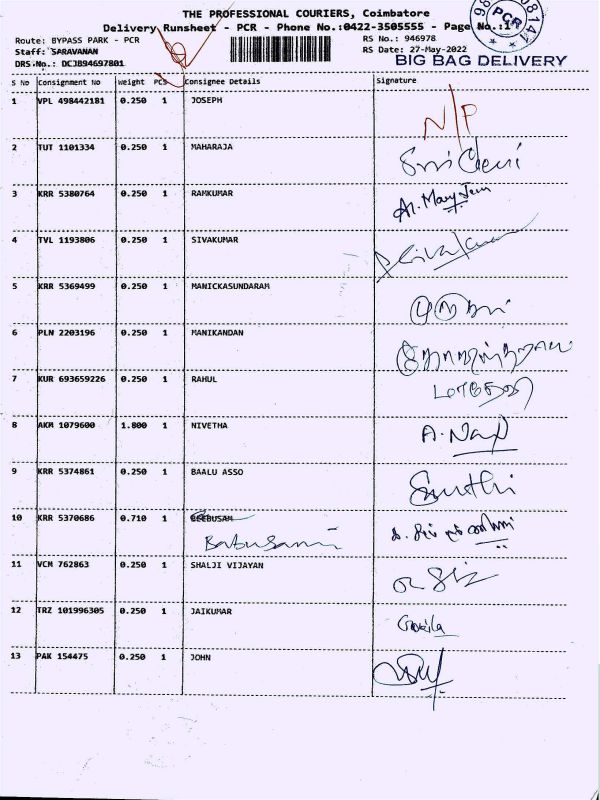 THE PROFESSIONAL COURIERS, Coimbatore
Delivery Runsheet - PCR - Phone No.:0422-3505555 - Page No.:1
Route: BYPASS PARK - PCR
RS No.: 946978
Staff: SARAVANAN
RS Date: 27-May-2022
DRS No.: DCJB94697801
BIG BAG DELIVERY
PCR
S No Consignment No Weight PCS Consignee Details Signature
1 VPL 498442181 0.250 1 JOSEPH N/P
2 TUT 1101334 0.250 1 MAHARAJA Sri Devi
3 KRR 5380764 0.250 1 RAMKUMAR
4 TVL 1193806 0.250 1 SIVAKUMAR
5 KRR 5369499 0.250 1 MANICKASUNDARAM
6 PLN 2203196 0.250 1 MANIKANDAN
7 KUR 693659226 0.250 1 RAHUL
8 AKM 1079600 1.800 1 NIVETHA
9 KRR 5374861 0.250 1 BAALU ASSO
10 KRR 5370686 0.710 1
Babusami
11 VCM 762863 0.250 1 SHALJI VIJAYAN
12 TRZ 101996305 0.250 1 JAIKUMAR
13 PAK 154475 0.250 1 JOHN